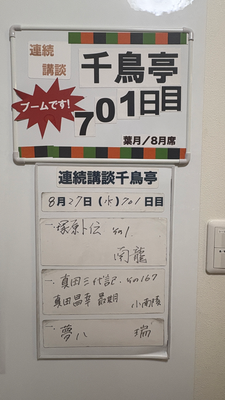 連続
講談
千鳥亭
ブームです!
701日目
葉月/8月席
連続講談千鳥亭
8月27日(水)701日目
一、塚原卜伝 その1
南龍
一、真田三代記 その167
真田昌幸 最期 小南陵
一、夢八 瑞